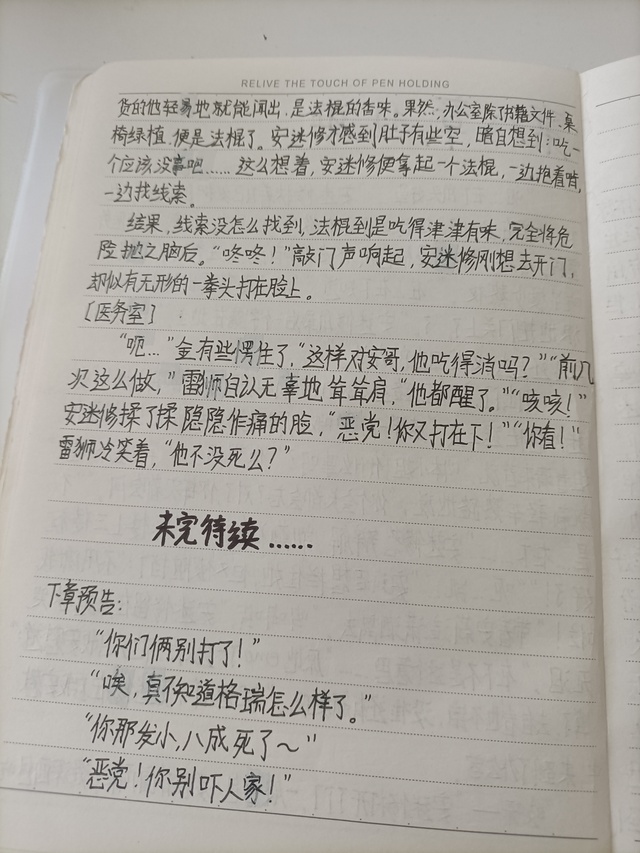 RELIVE THE TOUCH OF PEN HOLDING
货的他轻易地就能闻出，是法棍的香味。果然，办公室除了书籍文件、桌
椅绿植，便是法棍了。安迷修才感到肚子有些空，暗自想到：吃一
个应该没事吧……这么想着，安迷修便拿起一个法棍，一边抱着啃，
一边找线索。
结果，线索没怎么找到，法棍到是吃得津津有味，完全将危
险抛之脑后。“咚咚！”敲门声响起，安迷修刚想去开门，
却似有无形的一拳头打在脸上。
[医务室]
“呃…”金有些愣住了，“这样对安哥，他吃得消吗？”“前几
次这么做，”雷狮自认无辜地耸耸肩，“他都醒了。”“咳咳！”
安迷修揉了揉隐隐作痛的脸，“恶党！你又打在下！”“你看！”
雷狮冷笑着，“他不没死么？”
未完待续……
下章预告：
“你们俩别打了！”
“唉，真不知道格瑞怎么样了。”
“你那发小，八成死了～”
“恶党！你别吓人家！”